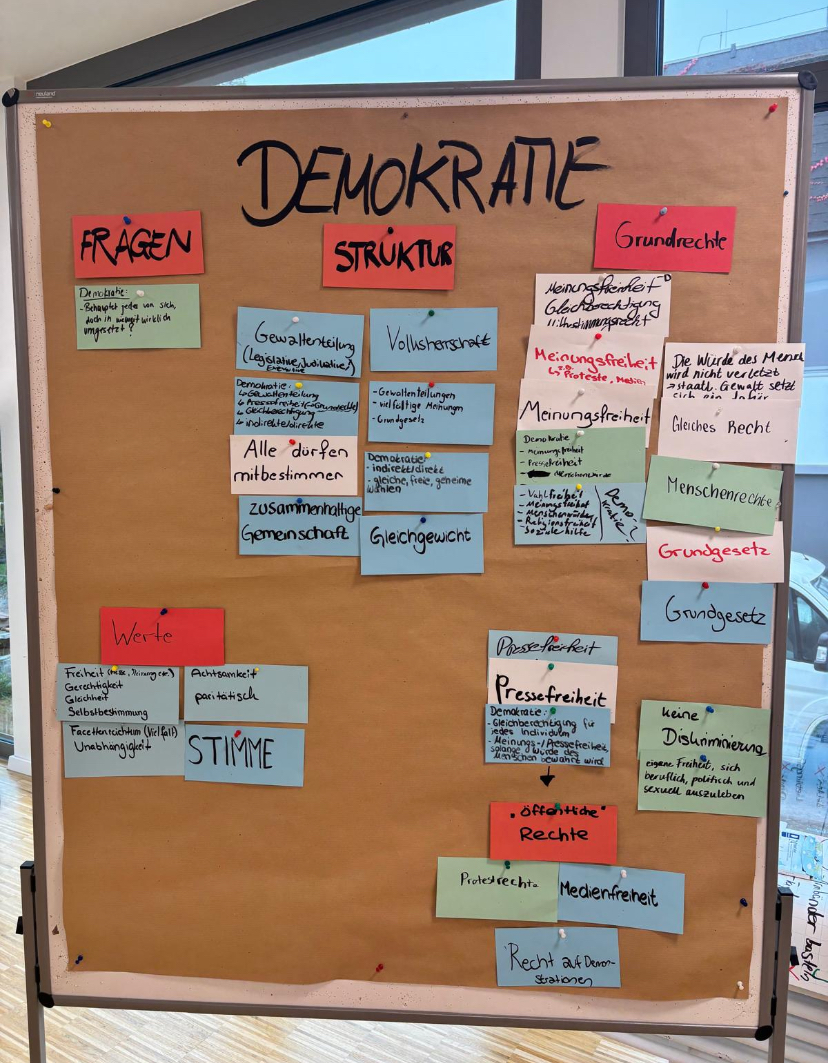 neuland
DEMOKRATIE
FRAGEN
Demokratie:
- Behauptet jedes von sich,
doch in wirklich
umgesetzt?
STRUKTUR
Gewaltenteilung
(Legislative, Judikative,
Exekutive)
Demokratie:
↳ Gewaltenteilung
↳ Pressefreiheit (Grundrechte)
↳ Gleichberechtigung
↳ indirekte/direkte
Alle dürfen
mitbestimmen
zusammenhaltige
Gemeinschaft
Volksherrschaft
- Gewaltenteilungen
- vielfältige Meinungen
- Grundgesetz
Demokratie:
- indirekt/direkt
- gleiche, freie, geheime
wahlen
Gleichgewicht
Grundrechte
Meinungsfreiheit
Gleichberechtigung
Mitbestimmungsrecht
Meinungsfreiheit
↳ z.B. Proteste, Medien
Meinungsfreiheit
Demokratie
- Meinungsfreiheit
- Pressefreiheit
- Menschenwürde
- Wahlfreiheit
- Meinungsfreiheit
- Menschenwürde
- Religionsfreiheit
- Soziale hilfe
Demo-
kratie?
Die Würde des Mensch
wird nicht verletzt
→ staatl. Gewalt setzt
sich ein dafür
Gleiches Recht
Menschenrechte
Grundgesetz
Grundgesetz
Werte
Freiheit (Presse-, Meinung etc.)
Gerechtigkeit
Gleichheit
Selbstbestimmung
Facettenreichtum (Vielfalt)
Unabhängigkeit
Achtsamkeit
paritätisch
STIMME
Pressefreiheit
Pressefreiheit
Demokratie:
- Gleichberechtigung für
jedes Individuum
- Meinungs-/Pressefreiheit,
solange würde des
Menschen bewahrt wird
"öffentliche"
Rechte
Protestrechte
Medienfreiheit
Recht auf Demon-
strationen
keine
Diskriminierung
eigene Freiheit, sich
beruflich, politisch und
sexuell auszuleben